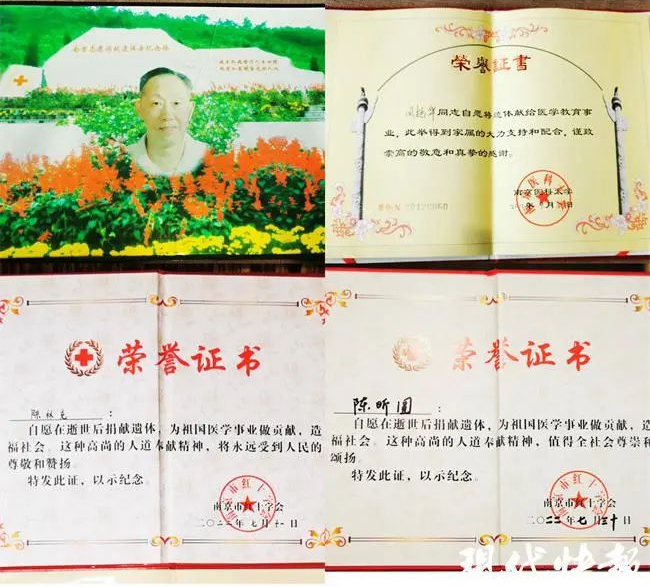 荣誉证書
同志自愿将遗体献给医学教育事
业，此举得到家属的大力支持和配合，谨致
崇高的敬意和真挚的感谢。
南京医科大学
荣誉证书
：
自愿在逝世后捐献遗体，为祖国医学事业做贡献，造
福社会。这种高尚的人道奉献精神，将永远受到人民的
尊敬和赞扬。
特发此证，以示纪念。
南京市红十字会
二〇二二年七月十一日
荣誉证书
陈昕圆：
自愿在逝世后捐献遗体，为祖国医学事业做贡献，造
福社会。这种高尚的人道奉献精神，值得全社会尊崇和
颂扬。
特发此证，以示纪念。
南京市红十字会
二〇二二年七月三十日
现代快报